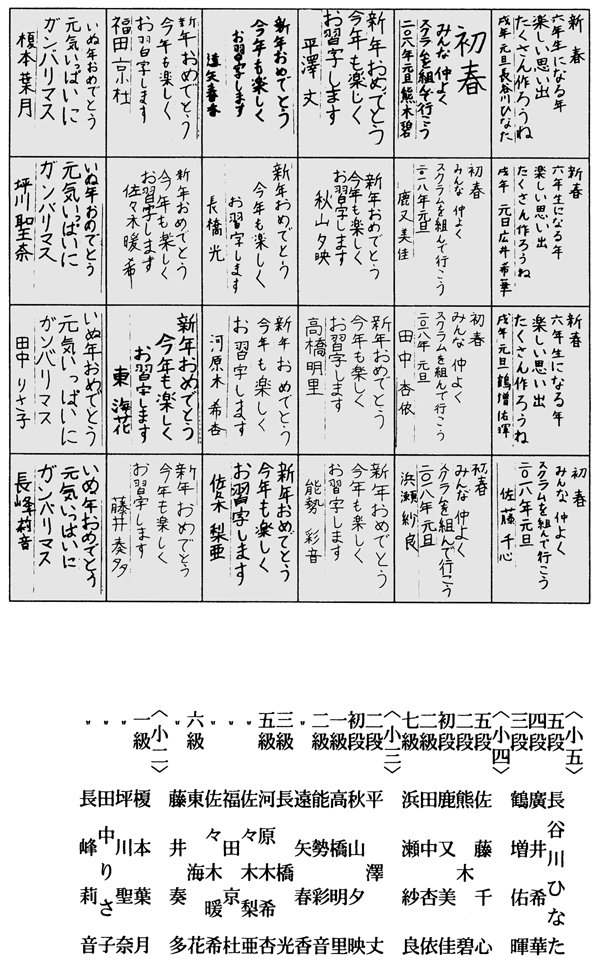 新春
六年生になる年
楽しい思い出
たくさん作ろうね
戌年 元旦 長谷川ひなた
初春
みんな仲よく
スクラムを組んで行こう
二〇一八年元旦 熊木碧
新年おめでとう
今年も楽しく
お習字します
平澤 丈
新年おめでとう
今年も楽しく
お習字します
遠矢春香
新年おめでとう
今年も楽しく
お習字します
福田京杜
いぬ年おめでとう
元気いっぱいに
ガンバリマス
榎本葉月
新春
六年生になる年
楽しい思い出
たくさん作ろうね
戌年 元日 広井希華
初春
みんな仲よく
スクラムを組んで行こう
二〇一八年元旦
鹿又美佳
新年おめでとう
今年も楽しく
お習字します
秋山夕映
新年おめでとう
今年も楽しく
お習字します
長橋 光
新年おめでとう
今年も楽しく
お習字します
佐々木暖希
いぬ年おめでとう
元気いっぱいに
ガンバリマス
坪川聖奈
新春
六年生になる年
楽しい思い出
たくさん作ろうね
戌年 元旦 鶴増佑暉
初春
みんな仲よく
スクラムを組んで行こう
二〇一八年元旦
田中杏依
新年おめでとう
今年も楽しく
お習字します
高橋明里
新年おめでとう
今年も楽しく
お習字します
河原木希杏
新年おめでとう
今年も楽しく
お習字します
東 海花
いぬ年おめでとう
元気いっぱいに
ガンバリマス
田中りさ子
初春
みんな仲よく
スクラムを組んで行こう
二〇一八年元旦
佐藤千心
初春
みんな仲よく
スクラムを組んで行こう
二〇一八年元旦
浜瀬紗良
新年おめでとう
今年も楽しく
お習字します
能勢彩音
新年おめでとう
今年も楽しく
お習字します
佐々木梨亜
新年おめでとう
今年も楽しく
お習字します
藤井奏多
いぬ年おめでとう
元気いっぱいに
ガンバリマス
長峰莉音
〈小五〉
五段 長谷川ひなた
四段 廣井希華
三段 鶴増佑暉
〈小四〉
五段 佐藤千心
二段 熊木碧
初段 鹿又美佳
二級 田中杏依
七級 浜瀬紗良
〈小三〉
二段 平澤丈
初段 秋山夕映
一級 高橋明里
二級 能勢彩音
〃 遠矢春香
三級 長橋光
五級 河原木希杏
〃 佐々木梨亜
〃 福田京杜
〃 佐々木暖希
六級 東海花
〃 藤井奏多
〈小二〉
一級 榎本葉月
〃 坪川聖奈
〃 田中りさ子
〃 長峰莉音